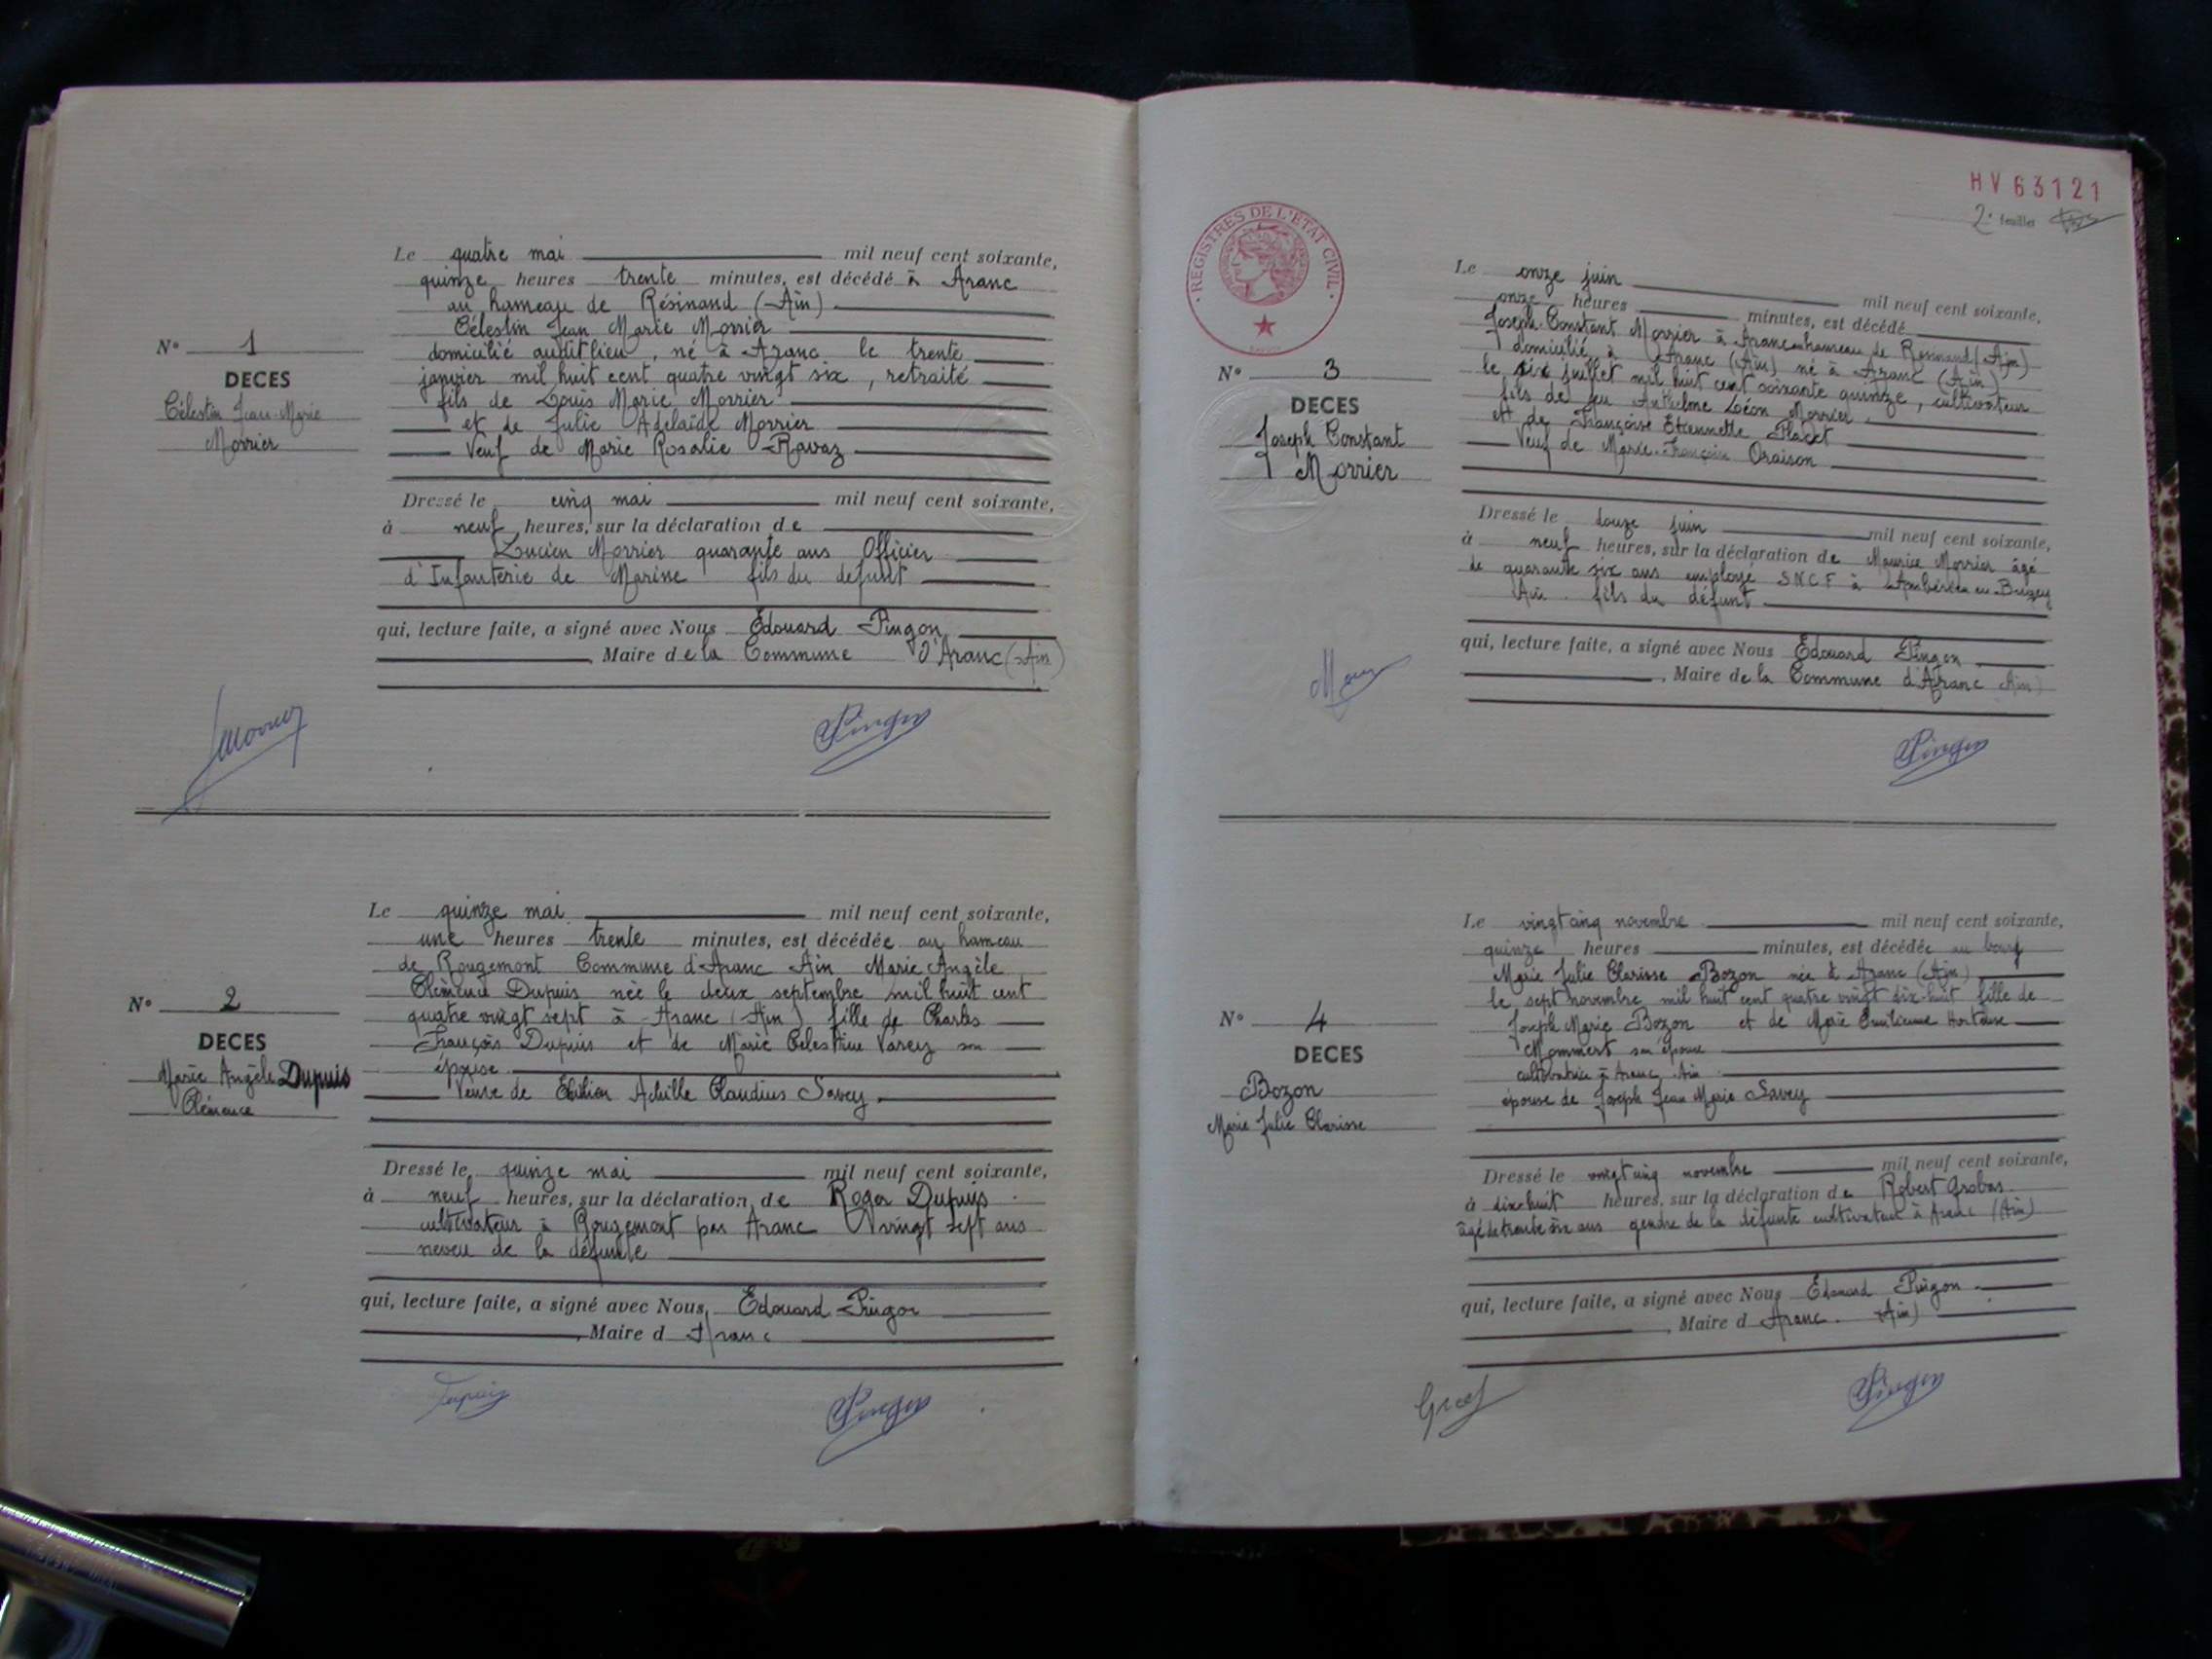 Le quatre mai mil neuf cent soixante,
quinze heures trente minutes, est décédé à Aranc
au hameau de Résinand (Ain)
Célestin Jean Marie Morrier
domicilié audit lieu, né à Aranc le trente
janvier mil huit cent quatre vingt six, retraité
fils de Louis Marie Morrier
et de Julie Adelaïde Morrier
Veuf de Marie Rosalie Ravaz
N° 1
DECES
Célestin Jean-Marie
Morrier
Dressé le cinq mai mil neuf cent soixante,
à neuf heures, sur la déclaration de
Lucien Morrier quarante ans Officier
d'Infanterie de Marine fils du défunt
qui, lecture faite, a signé avec Nous Edouard Pingon
, Maire de la Commune d'Aranc (Ain)
Pingon
Le quinze mai mil neuf cent soixante,
une heures trente minutes, est décédée au hameau
de Rougemont Commune d'Aranc Ain Marie Angèle
Clémence Dupuis née le deux septembre mil huit cent
quatre vingt sept à Aranc (Ain) fille de Charles
François Dupuis et de Marie Celestine Varey son
épouse
Veuve de Achille Claudius Savey
N° 2
DECES
Marie Angèle Dupuis
Clémence
Dressé le quinze mai mil neuf cent soixante,
à neuf heures, sur la déclaration de Roger Dupuis
cultivateur à Rougemont par Aranc vingt sept ans
neveu de la défunte
qui, lecture faite, a signé avec Nous, Edouard Pingon
, Maire d Aranc
Dupuis
Pingon
HV 63121
2e feuillet
REGISTRES DE L'ETAT CIVIL
Le onze juin mil neuf cent soixante,
onze heures minutes, est décédé
Joseph Constant Morrier à Aranc hameau de Résinand (Ain)
domicilié à Aranc (Ain) né à Aranc (Ain)
le six juillet mil huit cent soixante quinze, cultivateur
fils de feu Anthelme Léon Morrier
et de Françoise Etiennette Placet
Veuf de Marie-Françoise Oraison
N° 3
DECES
Joseph Constant
Morrier
Dressé le douze juin mil neuf cent soixante,
à neuf heures, sur la déclaration de Maurice Morrier âgé
de quarante six ans employé S.N.C.F à Ambérieu en Bugey
Ain fils du défunt
qui, lecture faite, a signé avec Nous Edouard Pingon
, Maire de la Commune d'Aranc Ain)
Pingon
Le vingt cinq novembre mil neuf cent soixante,
quinze heures minutes, est décédée au bourg
Marie Julie Clarisse Bozon née à Aranc (Ain)
le sept novembre mil huit cent quatre vingt dix-huit fille de
Joseph Marie Bozon et de Marie Emilienne Hortense
Mommert son épouse
cultivatrice à Aranc Ain
épouse de Joseph Jean Marie Savey
N° 4
DECES
Bozon
Marie Julie Clarisse
Dressé le vingt cinq novembre mil neuf cent soixante,
à dix huit heures, sur la déclaration de Robert Grobas
âgé de trente six ans gendre de la défunte cultivateur à Aranc (Ain)
qui, lecture faite, a signé avec Nous Edouard Pingon
, Maire d Aranc. (Ain)
Pingon